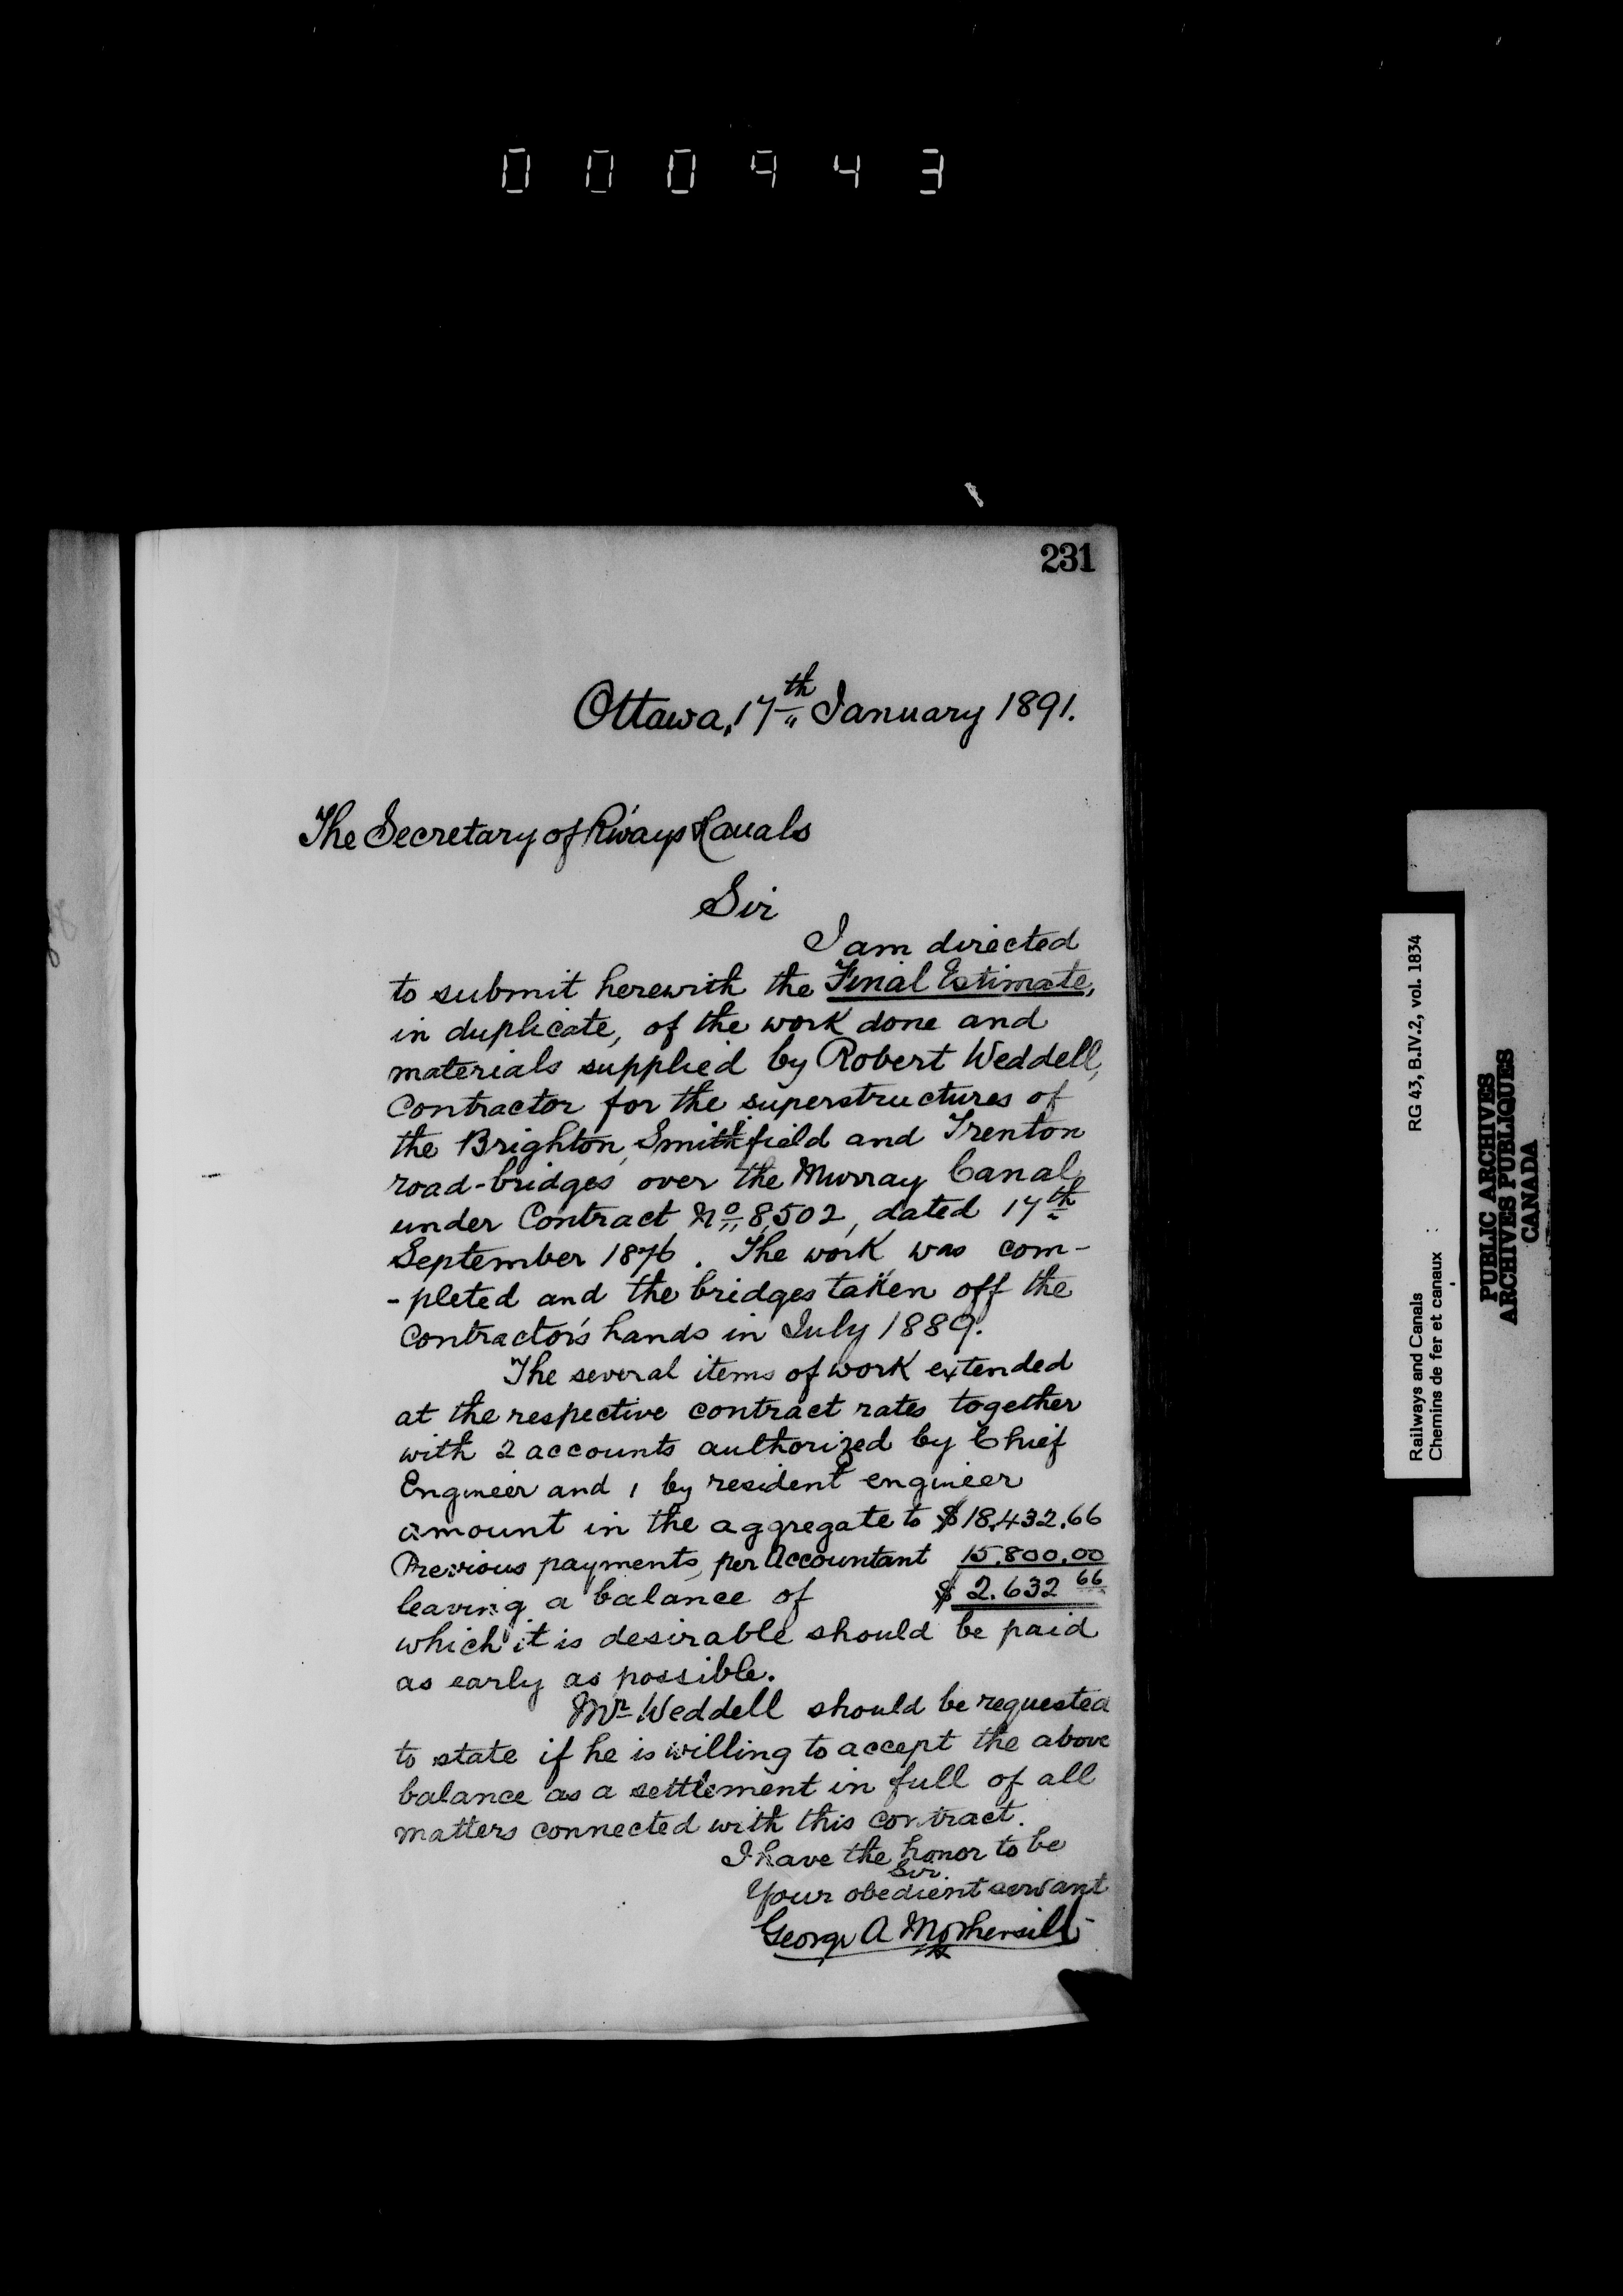 000943
231
Ottawa, 17th January 1891.
The Secretary of R'ways & Canals
Sir
I am directed
to submit herewith the Final Estimate,
in duplicate, of the work done and
materials supplied by Robert Weddell,
Contractor for the superstructures of
the Brighton, Smithfield and Trenton
road-bridges over the Murray Canal,
under Contract No. 8,502, dated 17th
September 1876. The work was com-
-pleted and the bridges taken off the
Contractor's hands in July 1889.
The several items of work extended
at the respective contract rates together
with 2 accounts authorized by Chief
Engineer and 1 by resident engineer
amount in the aggregate to $18,432.66
Previous payments, per Accountant 15,800.00
leaving a balance of $ 2.632 66
which it is desirable should be paid
as early as possible.
Mr Weddell should be requested
to state if he is willing to accept the above
balance as a settlement in full of all
matters connected with this contract.
I have the honor to be
Sir.
Your obedient servant
George A Mothersill
Railways and Canals RG 43, B.IV.2, vol. 1834
Chemins de fer et canaux
PUBLIC ARCHIVES
ARCHIVES PUBLIQUES
CANADA